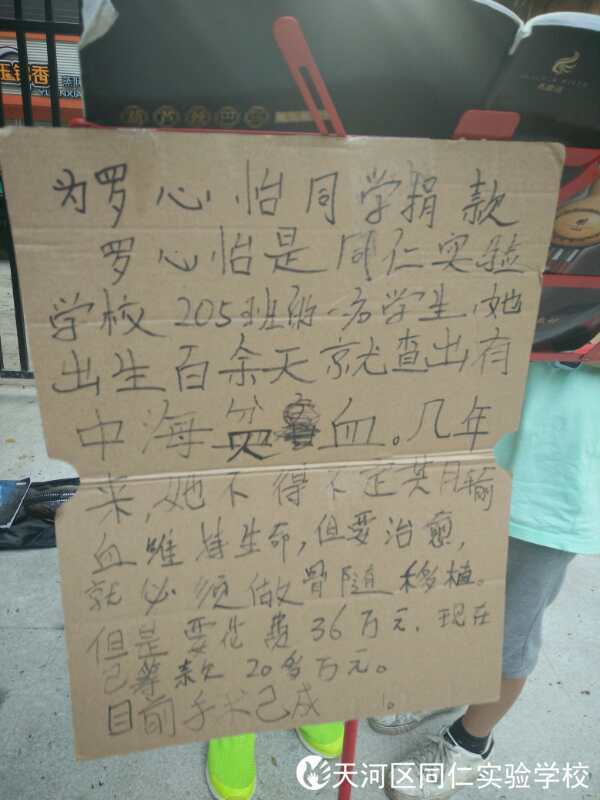 锅香
为罗心怡同学捐款
罗心怡是同仁实验
学校205班的一名学生,她
出生百余天就查出有
中海贫血。几年
来,她不得不定期输
血维持生命,但要治愈,
就必须做骨随移植。
但是要花费36万元.现在
已筹款20多万元。
目前手术已成 。
天河区同仁实验学校